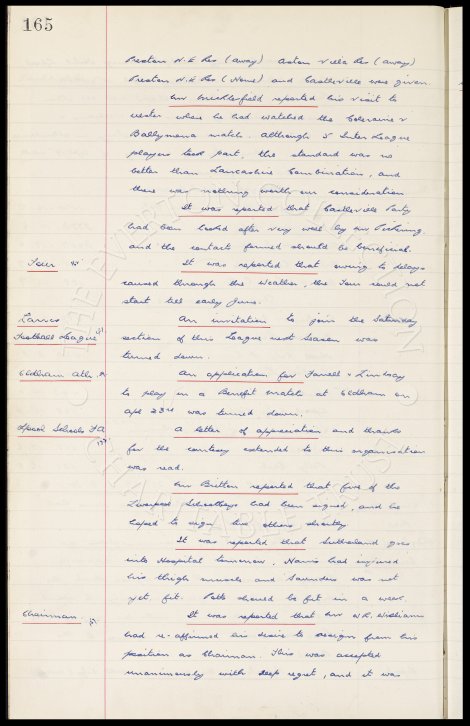 165
Preston N.E Res (away) Aston Villa Res (away)
Preston N.E Res (Home) and Castleville were given.
Mr Micklesfield reported his visit to
Ulster where he had watched the Coleraine v
Ballymena match. Although 5 Inter League
players took part, the standard was no
better than Lancashire Combination, and
there was nothing worth our consideration
It was reported that Castleville Party
had been looked after very well by Mr Pickering.
and the contacts formed should be beneficial.
Tour
It was reported that owing to delays
caused through the weather, the Tour could not
start till early June.
Lancs
Football League
An invitation to join the Saturday
section of this League next Season was
turned down.
Oldham Ath.
An application for Farrell & Lindsay
to play in a Benefit match at Oldham on
Apl 23rd was turned down.
Lpool Schools FA
A letter of appreciation and thanks
for the courtesy extended to this organisation
was read.
Mr Britton reported that five of the
Liverpool Schoolboys had been signed, and he
hoped to sign two others shortly
It was reported that Sutherland goes
into Hospital tomorrow, Harris had injured
his thigh muscle and Saunders was not
yet fit. Potts should be fit in a week
Chairman.
It was reported that Mr W.R. Williams
had re-affirmed his desire to resign from his
position as Chairman. This was accepted
unanimously with deep regret, and it was
THE EVERTON COLLECTION
CHARITABLE TRUST